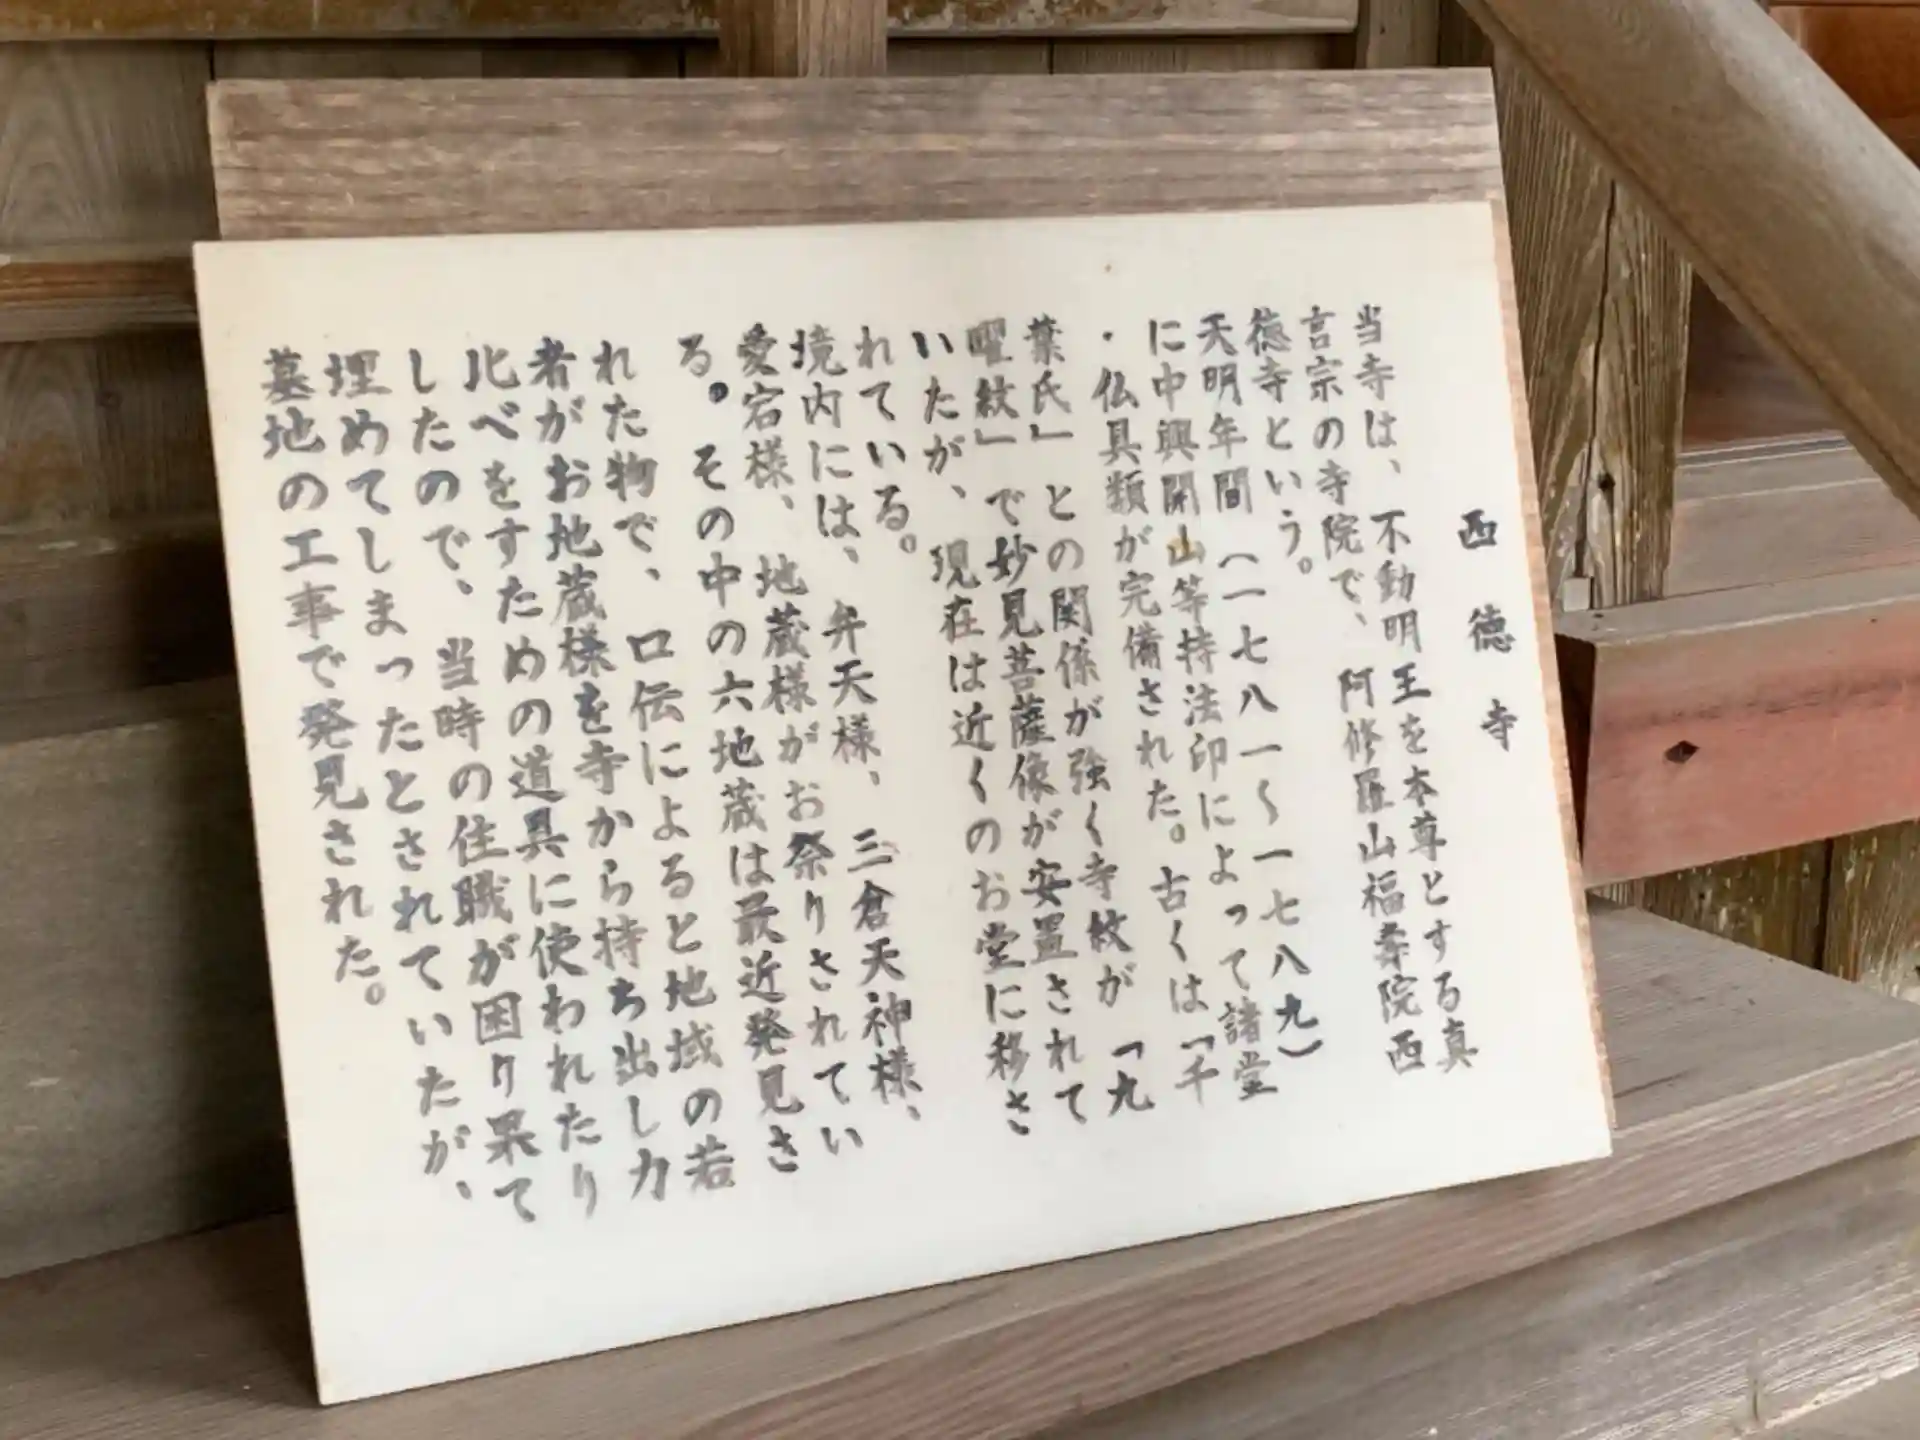 西徳寺
当寺は、不動明王を本尊とする真
言宗の寺院で、阿修羅山福寿院西
徳寺という。
天明年間(一七八一〜一七八九)
に中興開山等持法印によって諸堂
・仏具類が完備された。古くは「千
葉氏」との関係が強く寺紋が「九
曜紋」で妙見菩薩像が安置されて
いたが、現在は近くのお堂に移さ
れている。
境内には、弁天様、三倉天神様、
愛宕様、地蔵様がお祭りされてい
る。その中の六地蔵は最近発見さ
れた物で、口伝によると地域の若
者がお地蔵様を寺から持ち出し力
比べをするための道具に使われたり
したので、当時の住職が困り果て
埋めてしまったとされていたが、
墓地の工事で発見された。